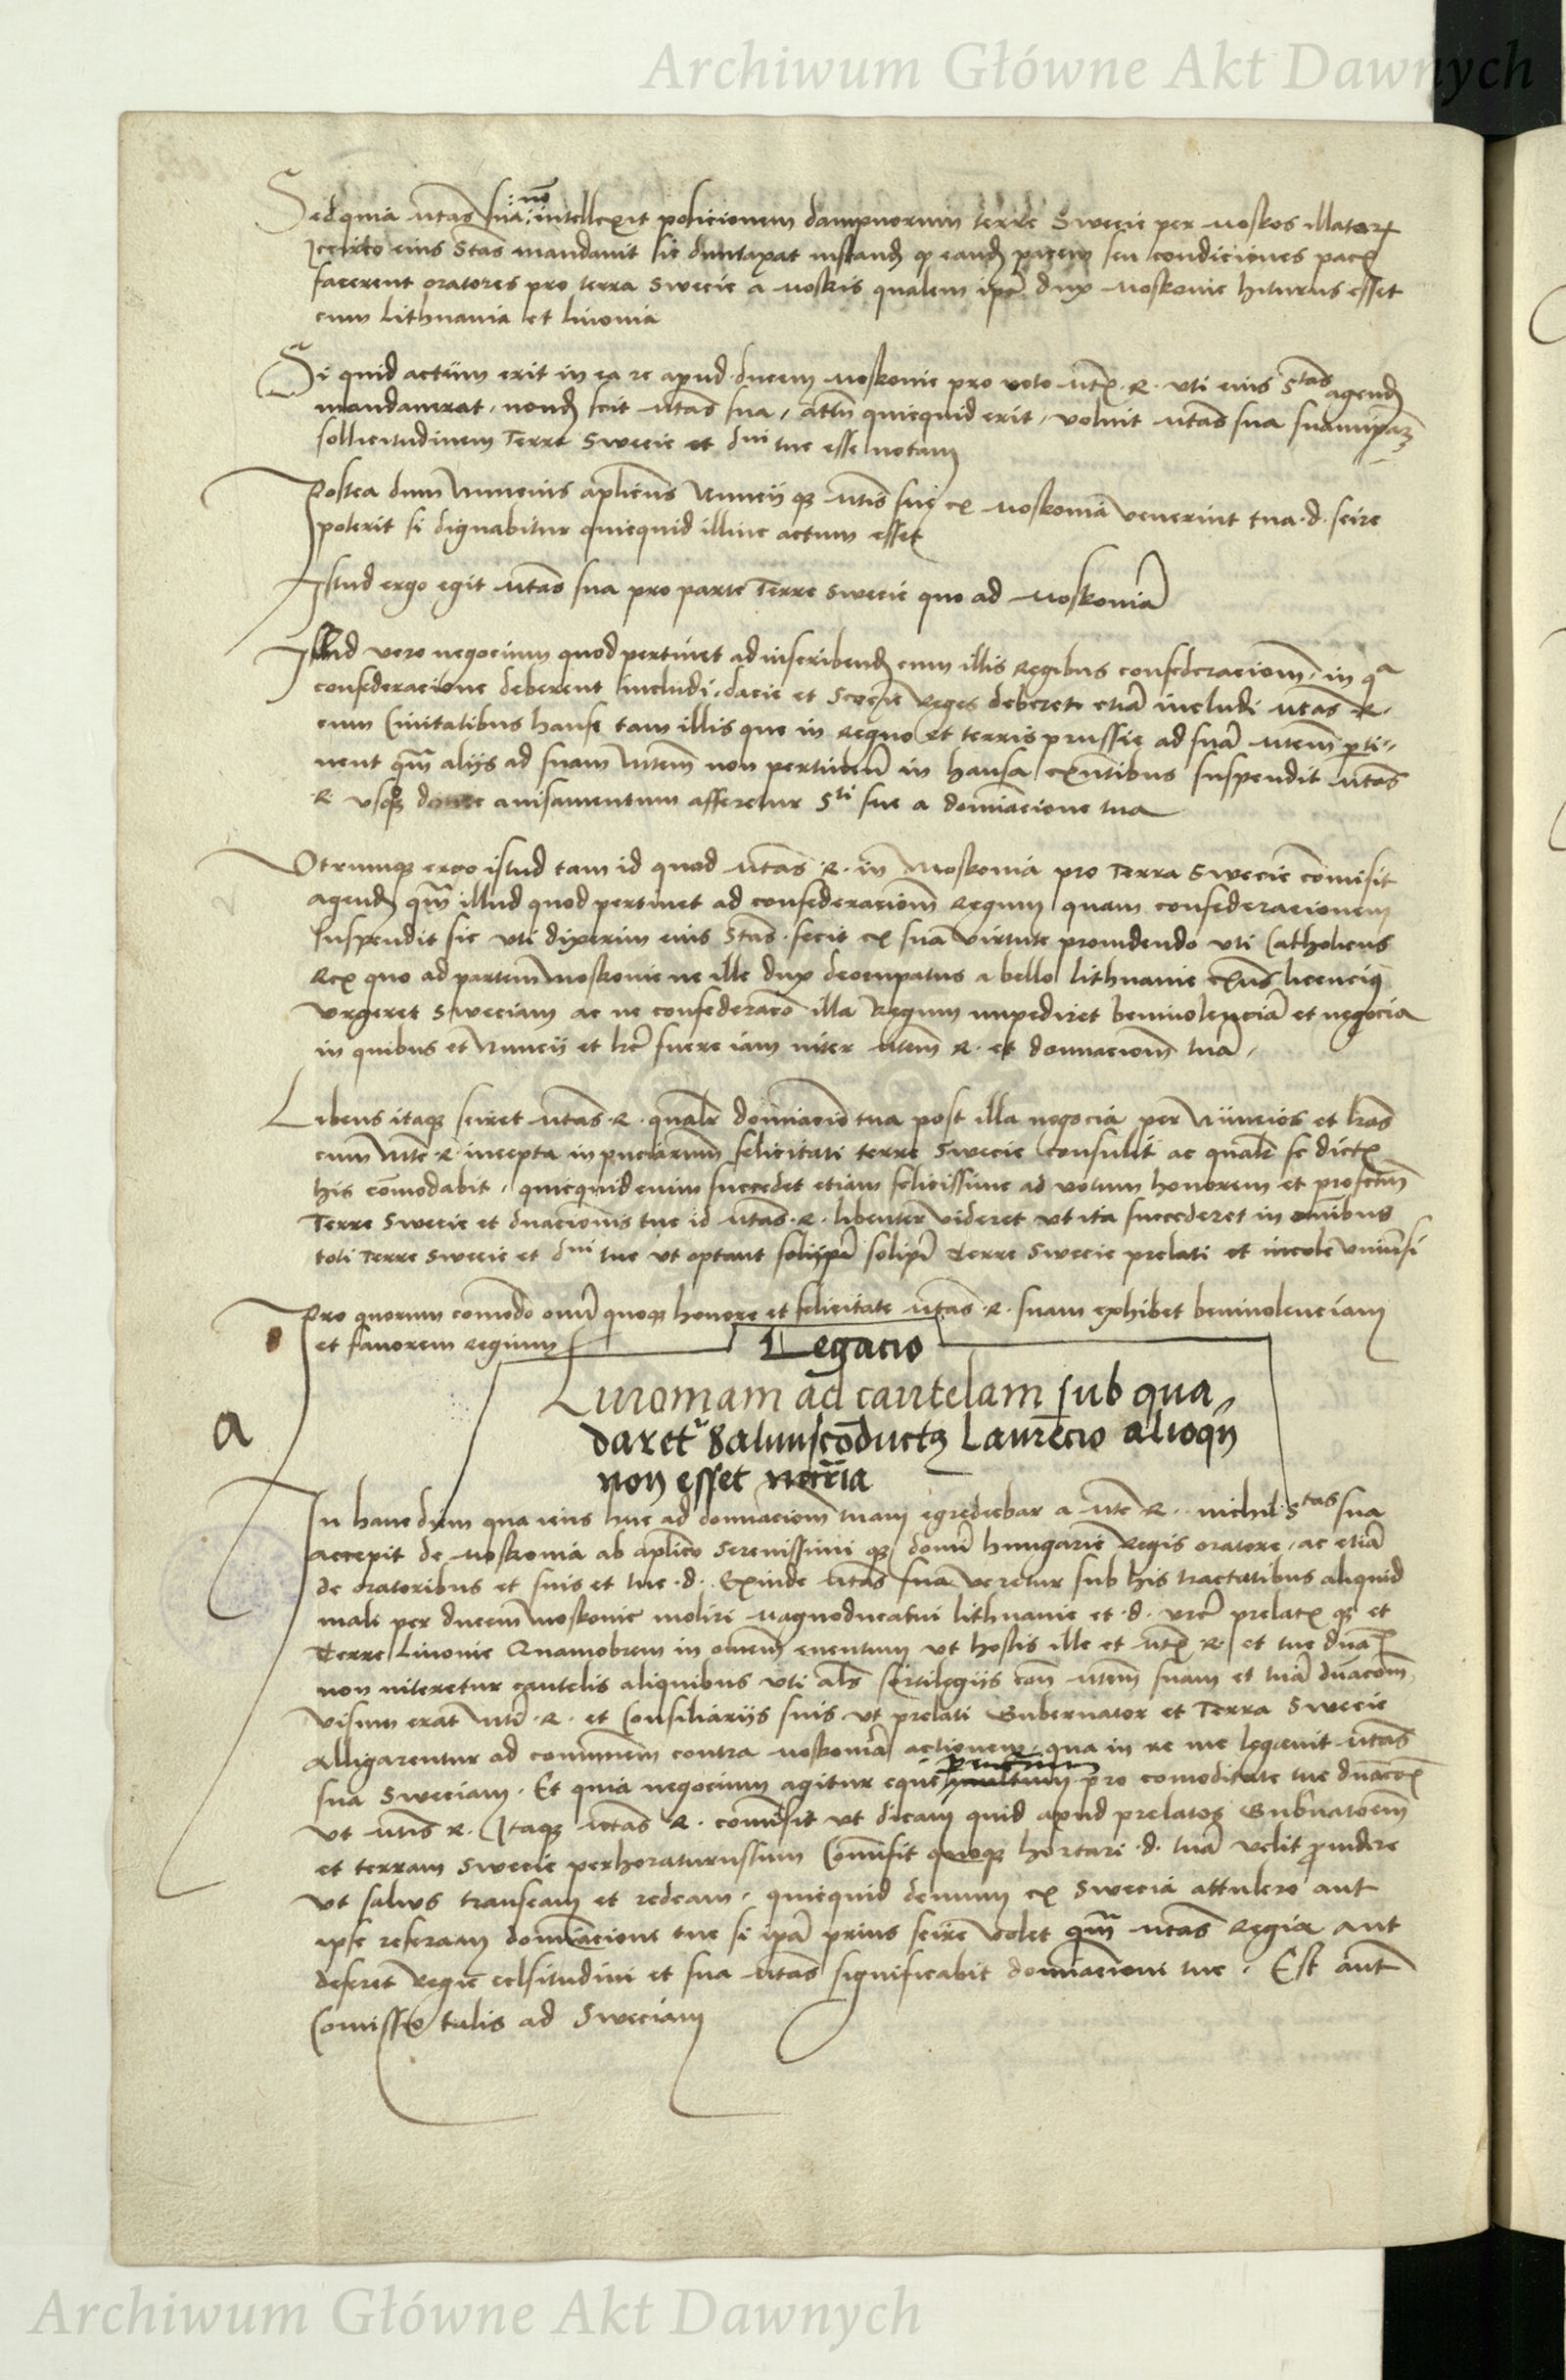 Archiwum Główne Akt Dawnych
Sed quia mtas sua no intellexit posicionem dampnorum terre Swecie per moskos illator
Iccirco eius Stas mandavit sic duntaxat instand qp eand pacem seu condiciones pacis
facerent oratores pro terra Swecie a moskis qualem ipe dux moskovie hiturus esset
cum Lithuania et livonia
Si quid actum erit in ea re apud ducem moskovie pro voto mtis R. uti eius Stas agend
mandaverat, nond scit mtas sua, attn quicquid erit, voluit mtas sua suam
sollicitudinem Terre Swecie et dni tue esse notam
Postea dum Nuncius aplicus Nuncij qz mtis sue ex moskovia venerint tua d. scire
poterit si dignabitur quicquid illinc actum esset
Istud ergo egit mtas sua pro parte Terre Swecie quo ad moskoviam
Illud vero negocium quod pertinet ad inscribend cum illis Regibus confederaciom, in qa
confederacione deberent includi, dacie et Scocie Reges deberet etia includi mtas R.
cum Civitatibus hanse tam illis que in Regno et terris prussie ad sua mtem perti-
nent qm alijs ad suam mtem non pertinen in hansa exntibus suspendit mtas
R usqz donec avisamentum afferetur Sti sue a domiacione tua
Utrumqz ergo istud tam id quod mtas R. in Moskovia pro Terra Swecie comisit
agend qm illud quod pertinet ad confederaciom Regum quam confederacionem
suspendit sic uti dixerim eius Stas. fecit ex sua virtute providendo uti Catholicus
Rex quo ad partem moskovie ne ille dux deoccupatus a bello lithuanie
urgeret Sweciam ac ne confederaco illa Regum impediret benivolencia et negocia
in quibus et Nuncij et lre fuere iam inter mtem R. et domiaciom tua,
Libens itaqz sciret mtas R. qualr domiacio tua post illa negocia per Nuncios et lras
cum mte R. incepta felicitati terre Swecie consulit ac qualr se dictis
his comodabit, quicquid enim succedet etiam felicissime ad votum honorem et profectum
Terre Swecie et dnacionis tue id mtas R. libenter videret ut ita succederet in omnibus
toti Terre Swecie et dni tue ut optant Terre Swecie prelati et incole universi
Pro quorum comodo omi quoqz honore et felicitate mtas R. suam exhibet benivolenciam
et favorem Regium
Legacio
Livoniam ad cautelam sub qua
daret salvuscoductus Laurecio alioqn
non esset necria
a
In hanc dum qua venis huc ad domiaciom tuam egrediebar a mte R. nichil Stas sua
accepit de moskovia ab aplico Serenissimi qz domi hungarie Regis oratore, ac etia
de oratoribus et suis et tue d. Exinde mtas sua veretur sub his tractatibus aliquid
mali per ducem moskovie moliri magnoducatui lithuanie et d. vre prelatis qz et
Terre Livonie Quamobrem in omem eventum ut hostis ille et mtis R. et tue dna
non niteretur cautelis aliquibus uti als sortilegijs con mtem suam et tua dnacom,
visum erat mti R. et Consiliarijs suis ut prelati Gubernator et Terra Swecie
alligarentur ad comunem contra moskovia actionem, qua in re me legavit mtas
sua Sweciam. Et quia negocium agitur eque pro comoditate tue dnacois
ut mtis R. Itaqz mtas R. comisit ut dicam quid apud prelatos Gubnatorem
et terram Swecie perhoraturussum Comisit quoqz hortari d. tua velit providere
ut salvus transeam et redeam, quicquid demum ex Swecia attulero aut
ipse referam domiacioni tue si ipa prius scire volet qm mtas Regia aut
deferet Regie celsitudini et sua mtas significabit domiacioni tue. Est aut
Comissio talis ad Sweciam
Archiwum Główne Akt Dawnych